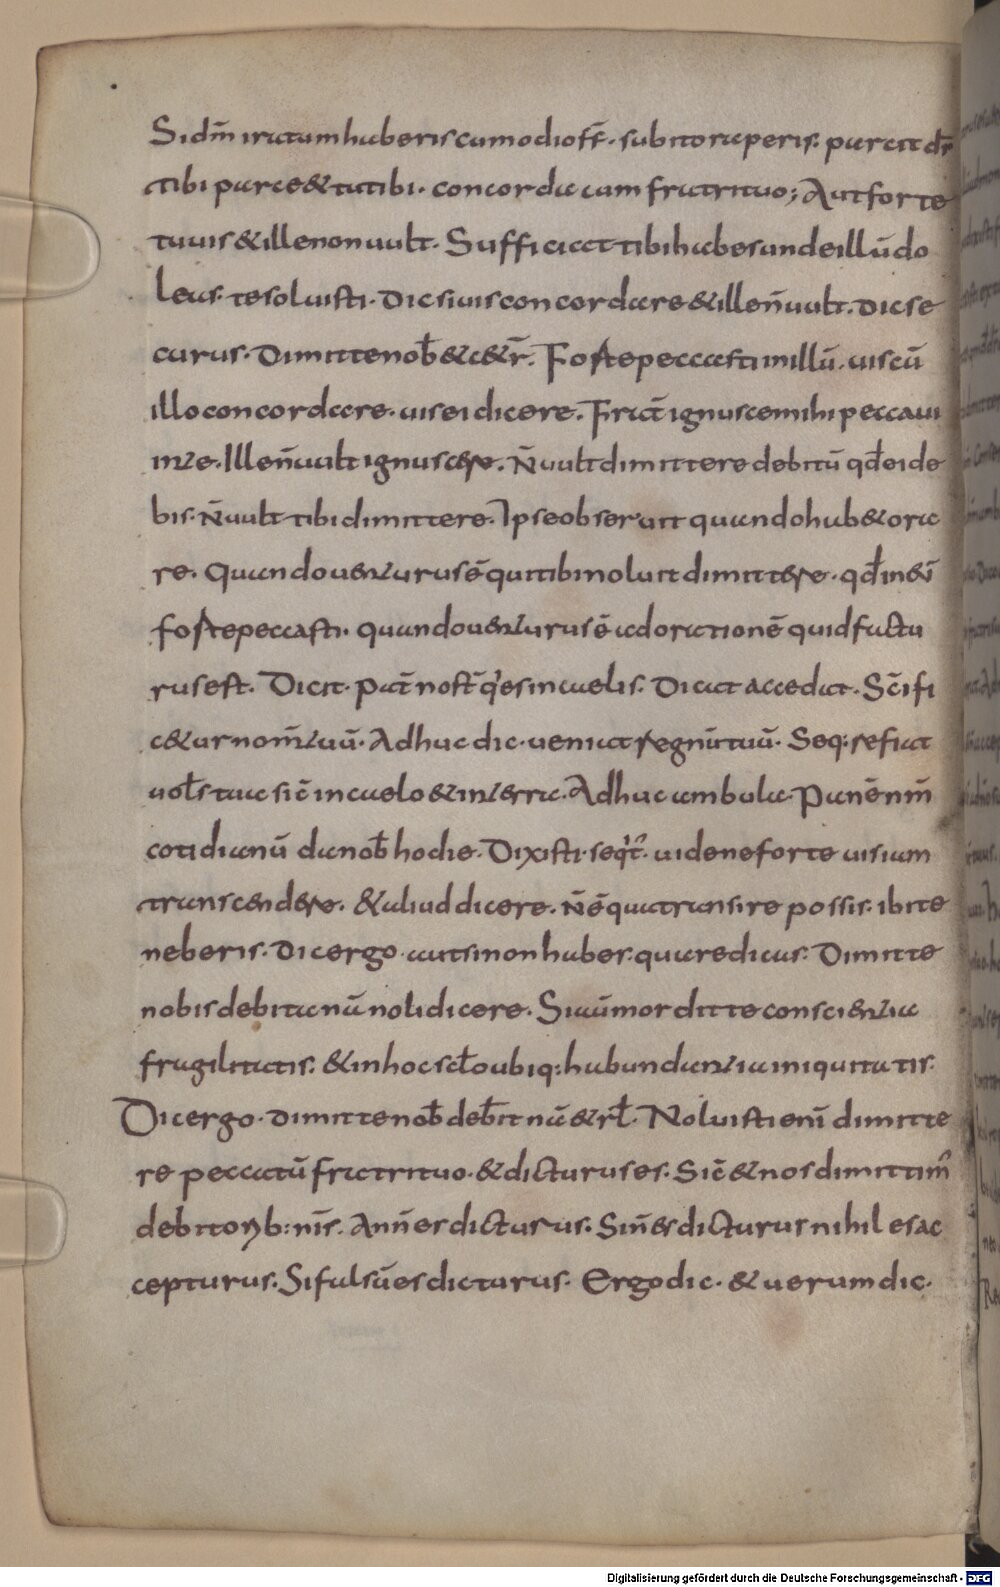 Si dm̄ iratum haberis cum odio fr̄. subito raperis. parcit dr̄
tibi parce & tu tibi. concorda cum fratri tuo; Aut forte
tu uis & ille non uult. Sufficiat tibi habes unde illū do
leas. te soluisti. Dic si uis concordare & ille n̄ uult. dic se
curus. Dimitte nob̄ & c&r̄. Forte peccasti in illū. uis cū
illo concordare. uis ei dicere. Frat̄ ignusce mihi peccaui
in te. Ille n̄ uult ignuscere. N̄ uult dimittere debitū qd̄ ei de
bis. N̄ uult tibi dimittere. Ipse obseruit quando hab& ora
re. Quando uenturus ē qui tibi noluit dimittere. qd̄ in eū
forte peccasti. quando uenturus ē ad orationē quid factu
rus est. Dicit. pat̄ nost̄ q̄ es in caelis. Dicat accedat. Sc̄ifi
c&ur nom̄ tuū. Adhuc dic. ueniat regnū tuū. Seq: re fiat
uol̄s tua sic̄ in caelo & in terra. Adhuc ambula. Panē nm̄
cotidianū da nob̄ hodie. Dixisti. seqt̄. uide ne forte uis iam
transcendere. & aliud dicere. N̄ ē qua transire possis. ibi te
neberis. Dic ergo. aut si non habes. quare dicas. Dimitte
nobis debita nā noli dicere. Si aū mordit te conscientia
fragilitatis. & in hoc scl̄o ubiq: habundantia iniquitatis.
Dic ergo. dimitte nob̄ deb̄it nā & rl̄. Noluisti enī dimitte
re peccatū fratri tuo. & dicturus es. Sic̄ & nos dimittim̄
debitorib: nīs. An n̄ es dicturus. Si n̄ es dicturus nihil es ac
cepturus. Si fulsū es dicturus. Ergo dic. & uerum dic.
Digitalisierung gefördert durch die Deutsche Forschungsgemeinschaft - DFG